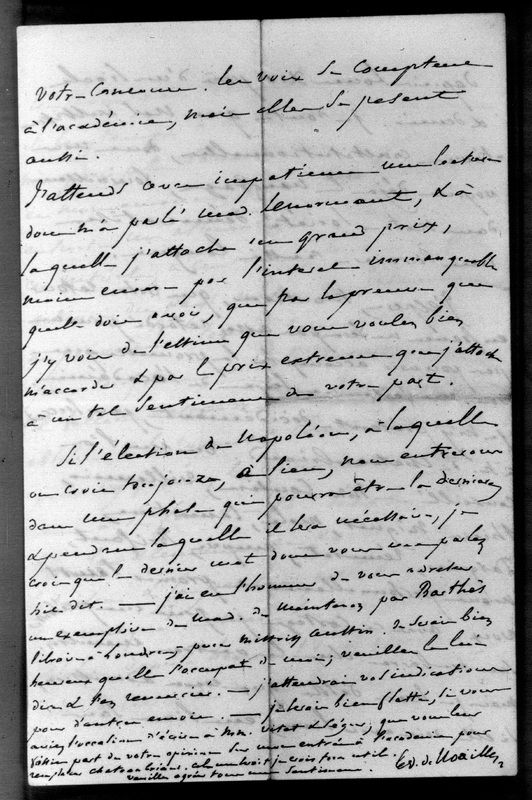 votre concours. les voix se comptent
à l'académie, mais elles se pesent
aussi.
J'attends avec impatience une lecture
dont m'a parlé mad. Lenormant, & à
laquelle j'attache un grand prix,
moins encore par l'interet immanquable
qu'elle doit avoir, que par la preuve que
j'y vois de l'estime que vous voulez bien
m'accorder & par le prix extreme que j'attache
à un tel sentiment de votre part.
Si l'élection de Napoléon, à laquelle
on croit toujours, a lieu, nous entrerons
dans une phase qui pourra être la derniere
& pendant laquelle il sera nécessaire, je
crois que le dernier mot dont vous me parlez
soit dit. — j'ai eu l'honneur de vous adresser
un exemplaire de mad. de maintenon par Barthès
libraire à Londres, pour mistriss austin. Je serais bien
heureux qu'elle s'occupat de moi; veuillez le lui
dire & l'en remercier. — j'attendrai vos indications
pour d'autres envois. — je serais bien flatté, si vous
aviez l'occasion d'écrire à Mrs. Vitet & Ségur, que vous leur
fissiez part de votre opinion sur mon entrée à l'academie pour
remplacer chateaubriand. cela me serait je crois fort utile.
veuillez agréer tous mes sentiments. Ed. de Noailles